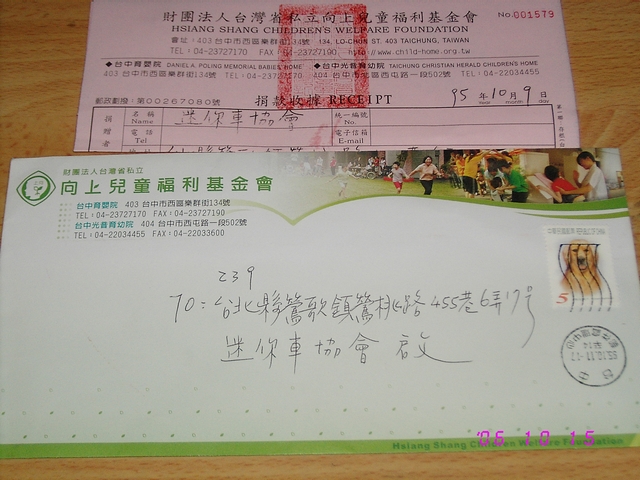 財團法人台灣省私立向上兒童福利基金會
HSIANG SHANG CHILDREN'S WELFARE FOUNDATION
No.001579
會址：403 台中市西區樂群街134號 134, LO-CHUN ST. 403 TAICHUNG, TAIWAN
TEL：04-23727170 FAX：04-23727190 http://www.child-home.org.tw
◆台中育嬰院 DANIEL A. POLING MEMORIAL BABIES' HOME
403 台中市西區樂群街134號 TEL：04-23727170
◆台中光音育幼院 TAICHUNG CHRISTIAN HERALD CHILDREN'S HOME
404 台中市西屯路一段502號 TEL：04-22034455
郵政劃撥：第00267080號
捐款收據 RECEIPT
95年 year 10月 month 9日 day
捐贈者
名稱 Name
迷你車協會
統一編號 No.
電話 Tel
電子信箱 E-mail
財團法人台灣省私立
向上兒童福利基金會
台中育嬰院 403 台中市西區樂群街134號
TEL：04-23727170 FAX：04-23727190
台中光音育幼院 404 台中市西屯路一段502號
TEL：04-22034455 FAX：04-22033600
5
239
TO：台北縣鶯歌鎮鶯桃路455巷6弄17號
迷你車協會 啟
Hsiang Shang Children Welfare Foundation
'06.10.15